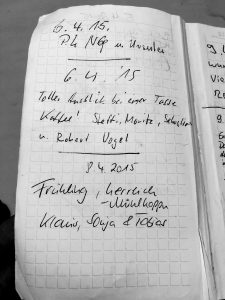 6.4.15.
Ph NGp u. Ursula
6.4. '15
Toller Ausblick bei einer Tasse
Kaffee! Steffi, Moritz, Sebastian
u. Robert Vogel
8.4.2015
Frühling, herrlich
Klaus, Sonja & Tobias
9.